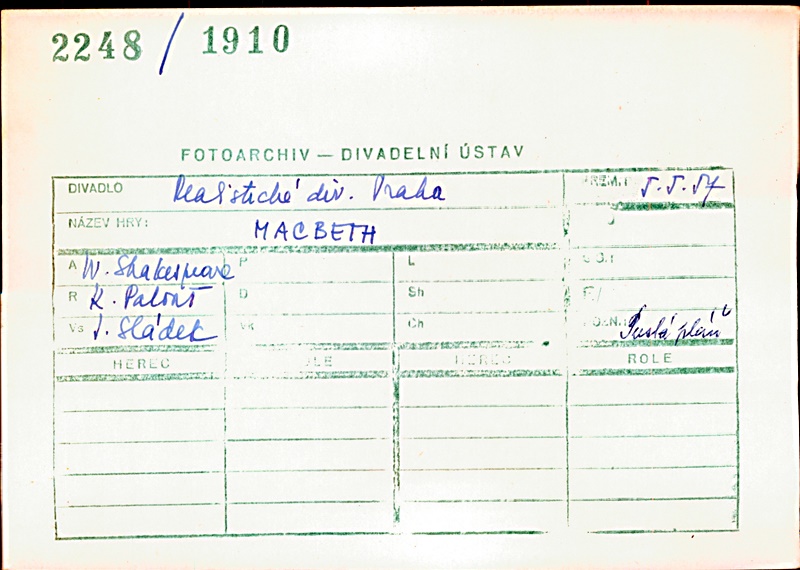 2248 / 1910
FOTOARCHIV — DIVADELNÍ ÚSTAV
DIVADLO Realistické div. Praha PREM.: 5.5.57
NÁZEV HRY: MACBETH
A W. Shakespeare P L
R K. Palouš D Sh
Vs J. Sládek Vk Ch POZN.: Pustá pláň
HEREC ROLE HEREC ROLE